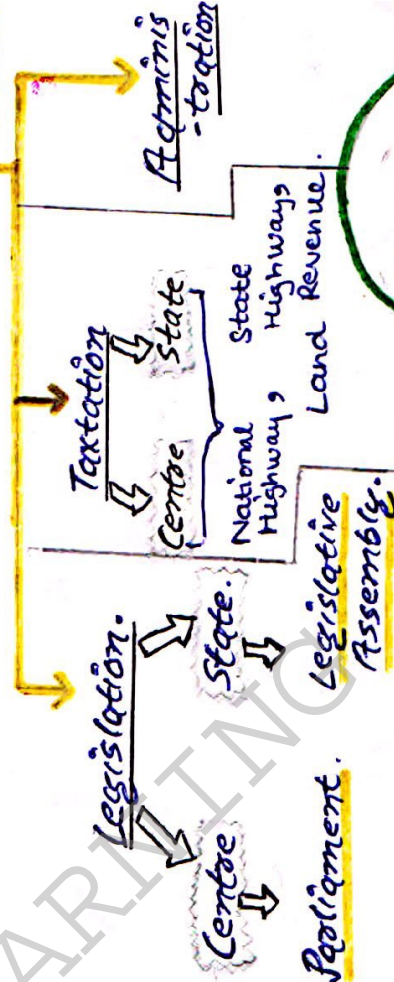 Legislation.
Centre
State.
Parliament.
Legislative
Assembly.
Taxtation
Centre
State
National
Highway,
State
Highways
Land Revenue.
Adminis
-tration
ARNING